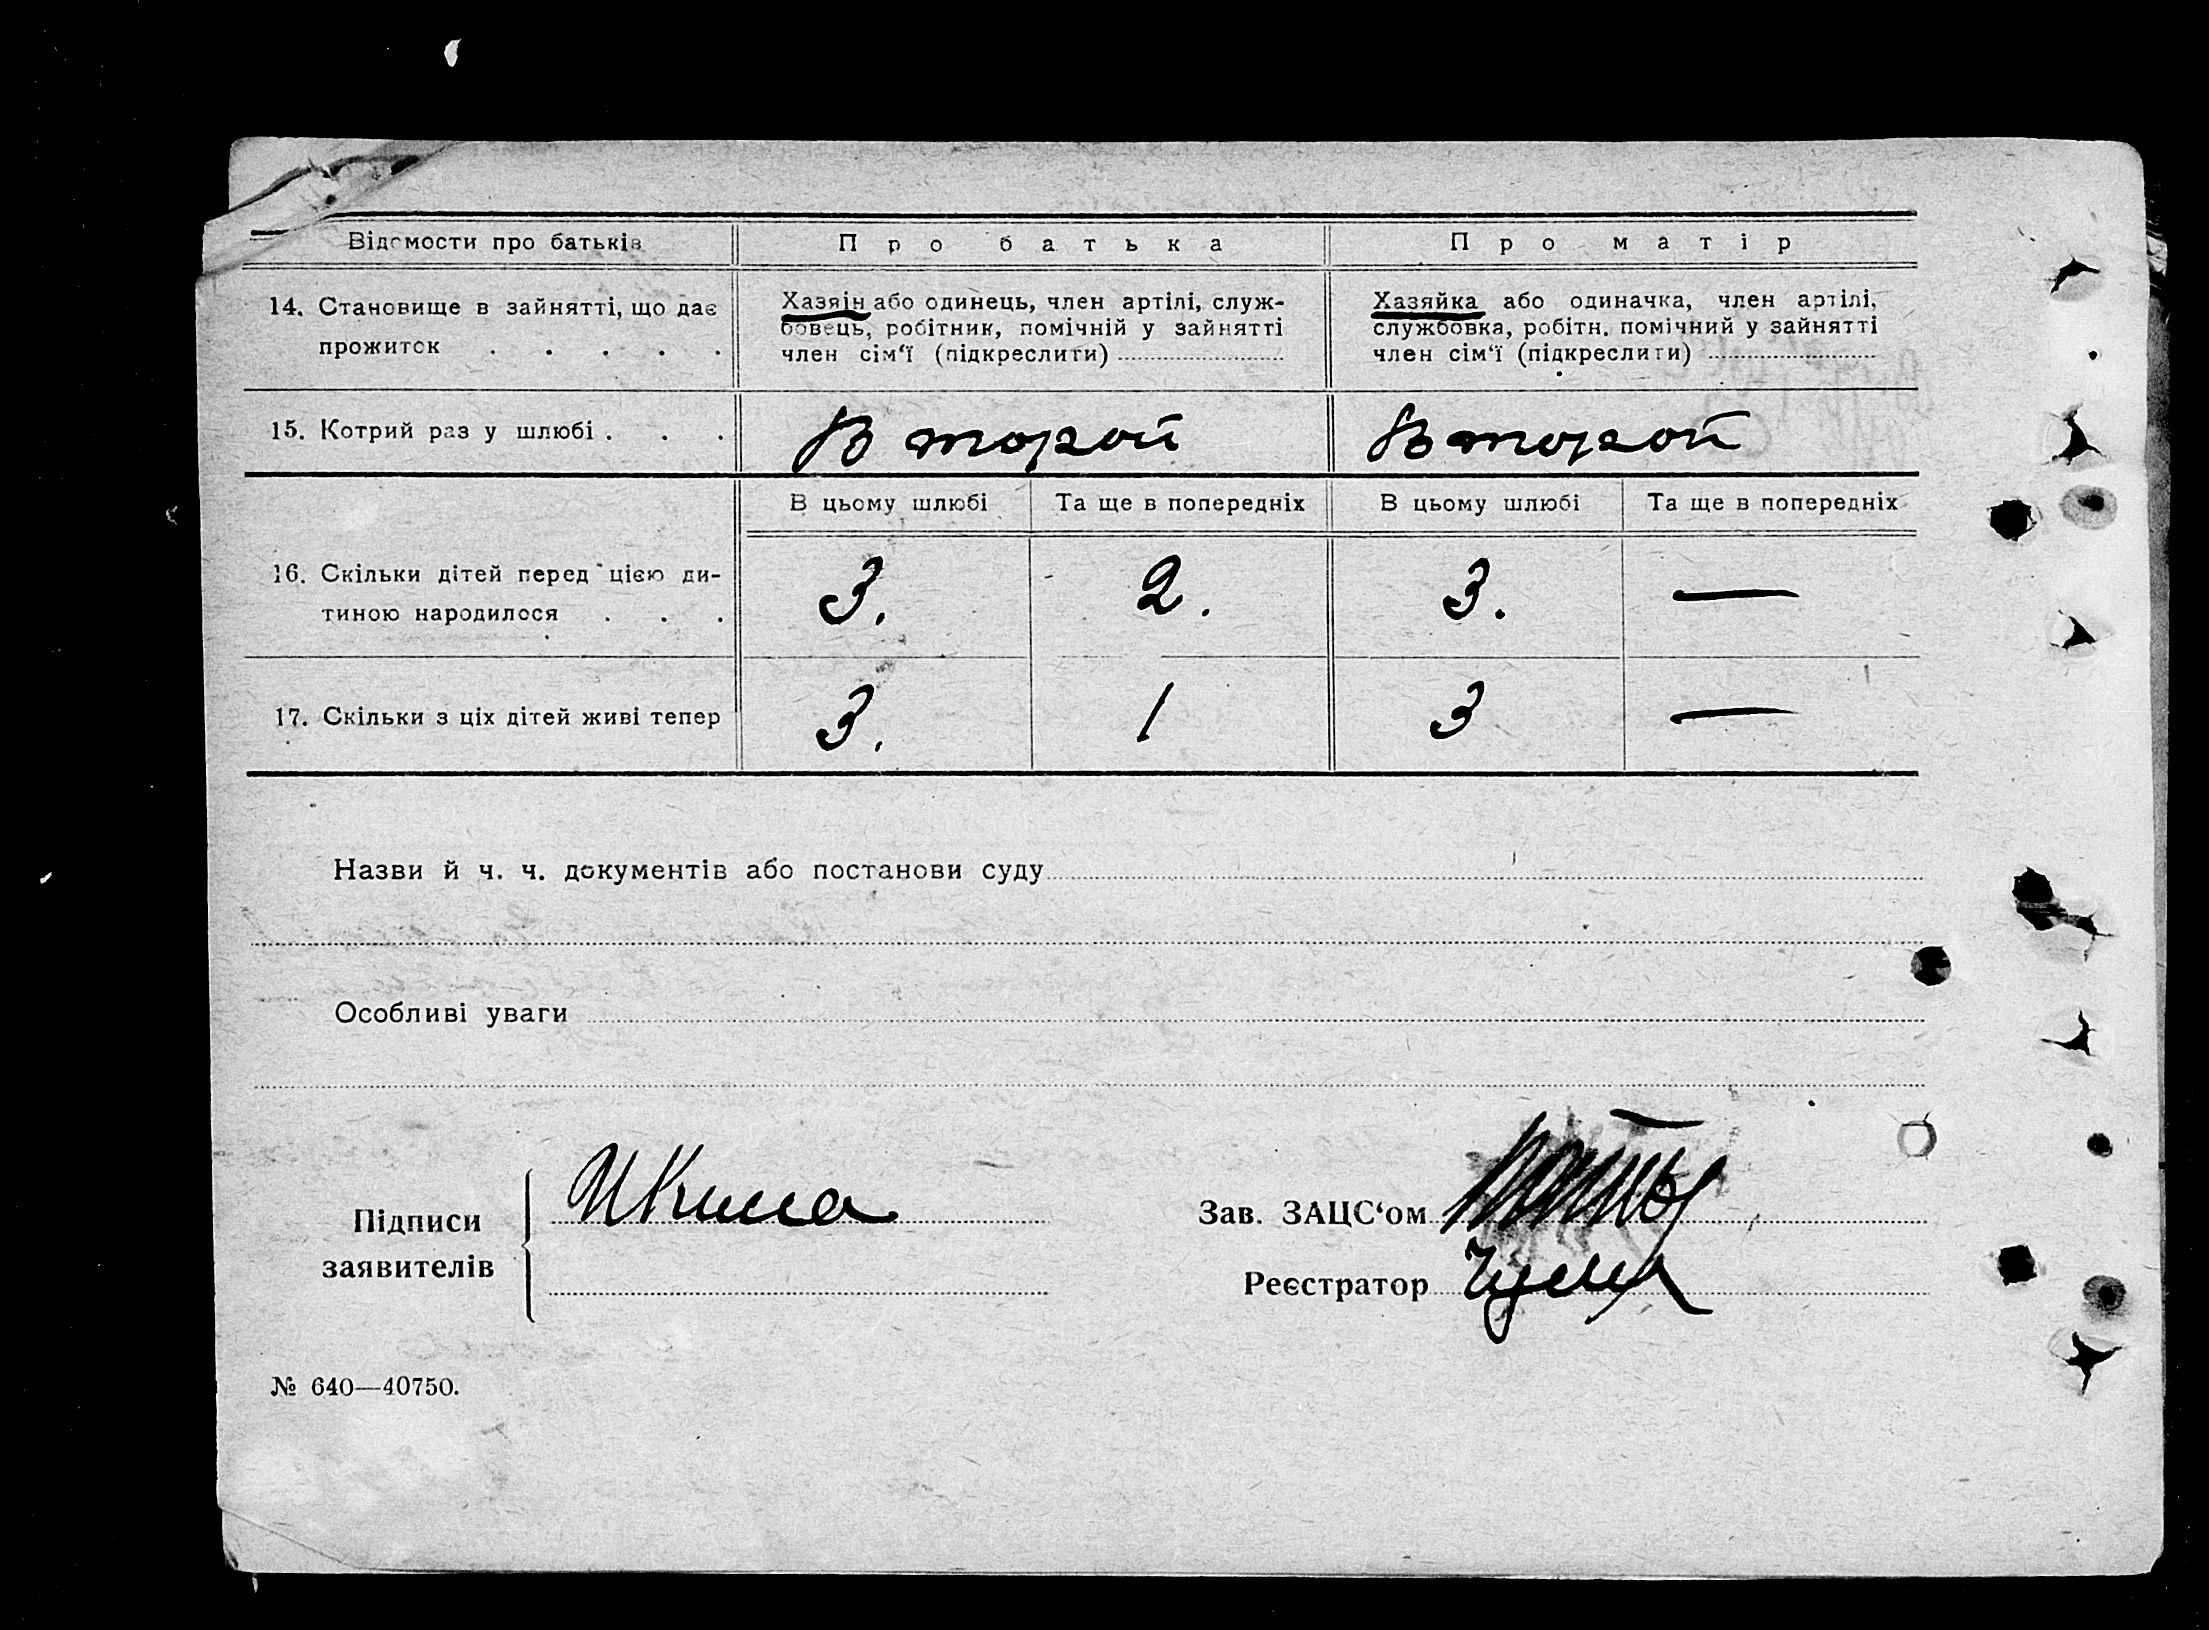 Відомости про батьків Про батька Про матір
14. Становище в зайнятті, що дає Хазяін або одинець, член артілі, служ- Хазяйка або одиначка, член артілі,
бовець, робітник, помічній у зайнятті службовка, робітн. помічний у зайнятті
прожиток . . . . . член сім'ї (підкреслити) член сім'ї (підкреслити)
15. Котрий раз у шлюбі . . . Второй Второй
В цьому шлюбі Та ще в попередніх В цьому шлюбі Та ще в попередніх
16. Скільки дітей перед цією ди-
тиною народилося . . . 3. 2. 3. —
17. Скільки з ціх дітей живі тепер 3. 1 3 —
Назви й ч. ч. документів або постанови суду
Особливі уваги
Підписи
заявителів
Зав. ЗАЦС'ом
Реєстратор
№ 640—40750.